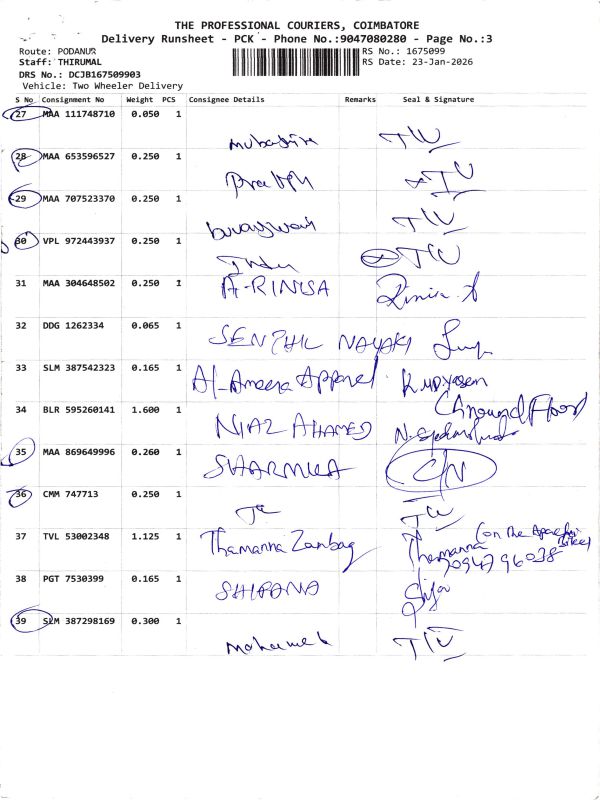 THE PROFESSIONAL COURIERS, COIMBATORE
Delivery Runsheet - PCK - Phone No.:9047080280 - Page No.:3
Route: PODANUR
RS No.: 1675099
Staff: THIRUMAL
RS Date: 23-Jan-2026
DRS No.: DCJB167509903
Vehicle: Two Wheeler Delivery
S No Consignment No Weight PCS Consignee Details Remarks Seal & Signature
27 MAA 111748710 0.050 1
28 MAA 653596527 0.250 1
29 MAA 707523370 0.250 1
30 VPL 972443937 0.250 1
31 MAA 304648502 0.250 1
A-RINISA
32 DDG 1262334 0.065 1
SENTHIL NAYAKI
33 SLM 387542323 0.165 1
Al-Ameera Apparel
34 BLR 595260141 1.600 1
Ground Floor
NIAZ AHAMED
35 MAA 869649996 0.260 1
SHARMILA C/N
36 CMM 747713 0.250 1
37 TVL 53002348 1.125 1
Thamanna Zanbag Thamanna
38 PGT 7530399 0.165 1
SHIFANA
39 SLM 387298169 0.300 1
Mohamed